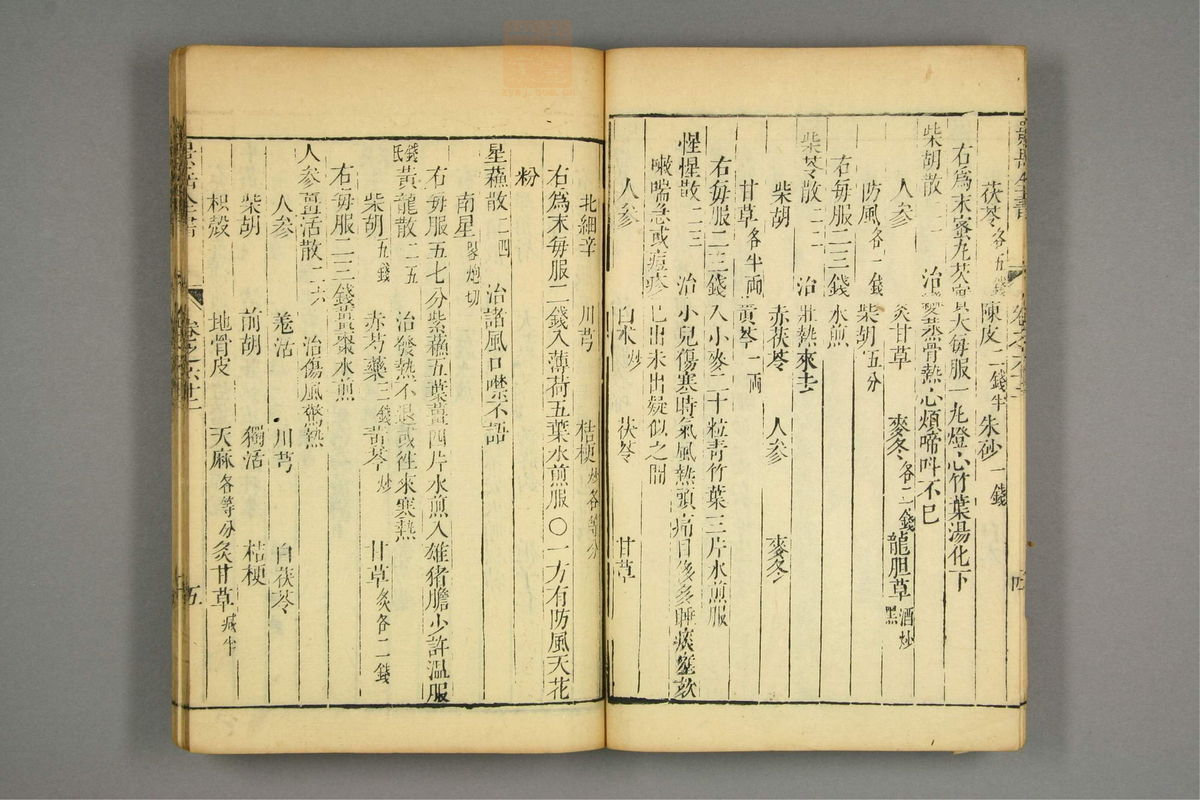 茯苓各五錢 陳皮二錢半 朱砂一錢
右爲末蜜丸芡實大每服一丸燈心竹葉湯化下
柴胡散二一 治變蒸骨熱心煩啼呌不已
人參 炙甘草 麥冬各二錢 龍胆草酒炒黑
防風各一錢 柴胡五分
右每服二三錢水煎
柴苓散二二 治壯熱來去
柴胡 赤茯苓 人參 麥冬
甘草各半両 黃芩一両
右每服二三錢入小麥二十粒青竹葉三片水煎服
惺惺散二三 治小兒傷寒時氣風熱頭痛目多多睡痰壅欬
嗽喘急或痘疹已出未出疑似之間
人參 白朮炒 茯苓 甘草
北細辛 川芎 桔梗炒各等分
右爲末每服二錢入薄荷五葉水煎服〇一方有防風天花
粉
星蘇散二四 治諸風口噤不語
南星畧炮切
右每服五七分紫蘇五葉薑四片水煎入雄猪膽少許温服
錢氏黃龍散二五 治發熱不退或徃來寒熱
柴胡五錢 赤芍藥三錢 黃芩炒 甘草炙各二錢
右每服二三錢薑棗水煎
人參羗活散二六 治傷風驚熱
人參 羗活 川芎 白茯苓
柴胡 前胡 獨活 桔梗
枳殼 地骨皮 天麻各等分 炙甘草減半